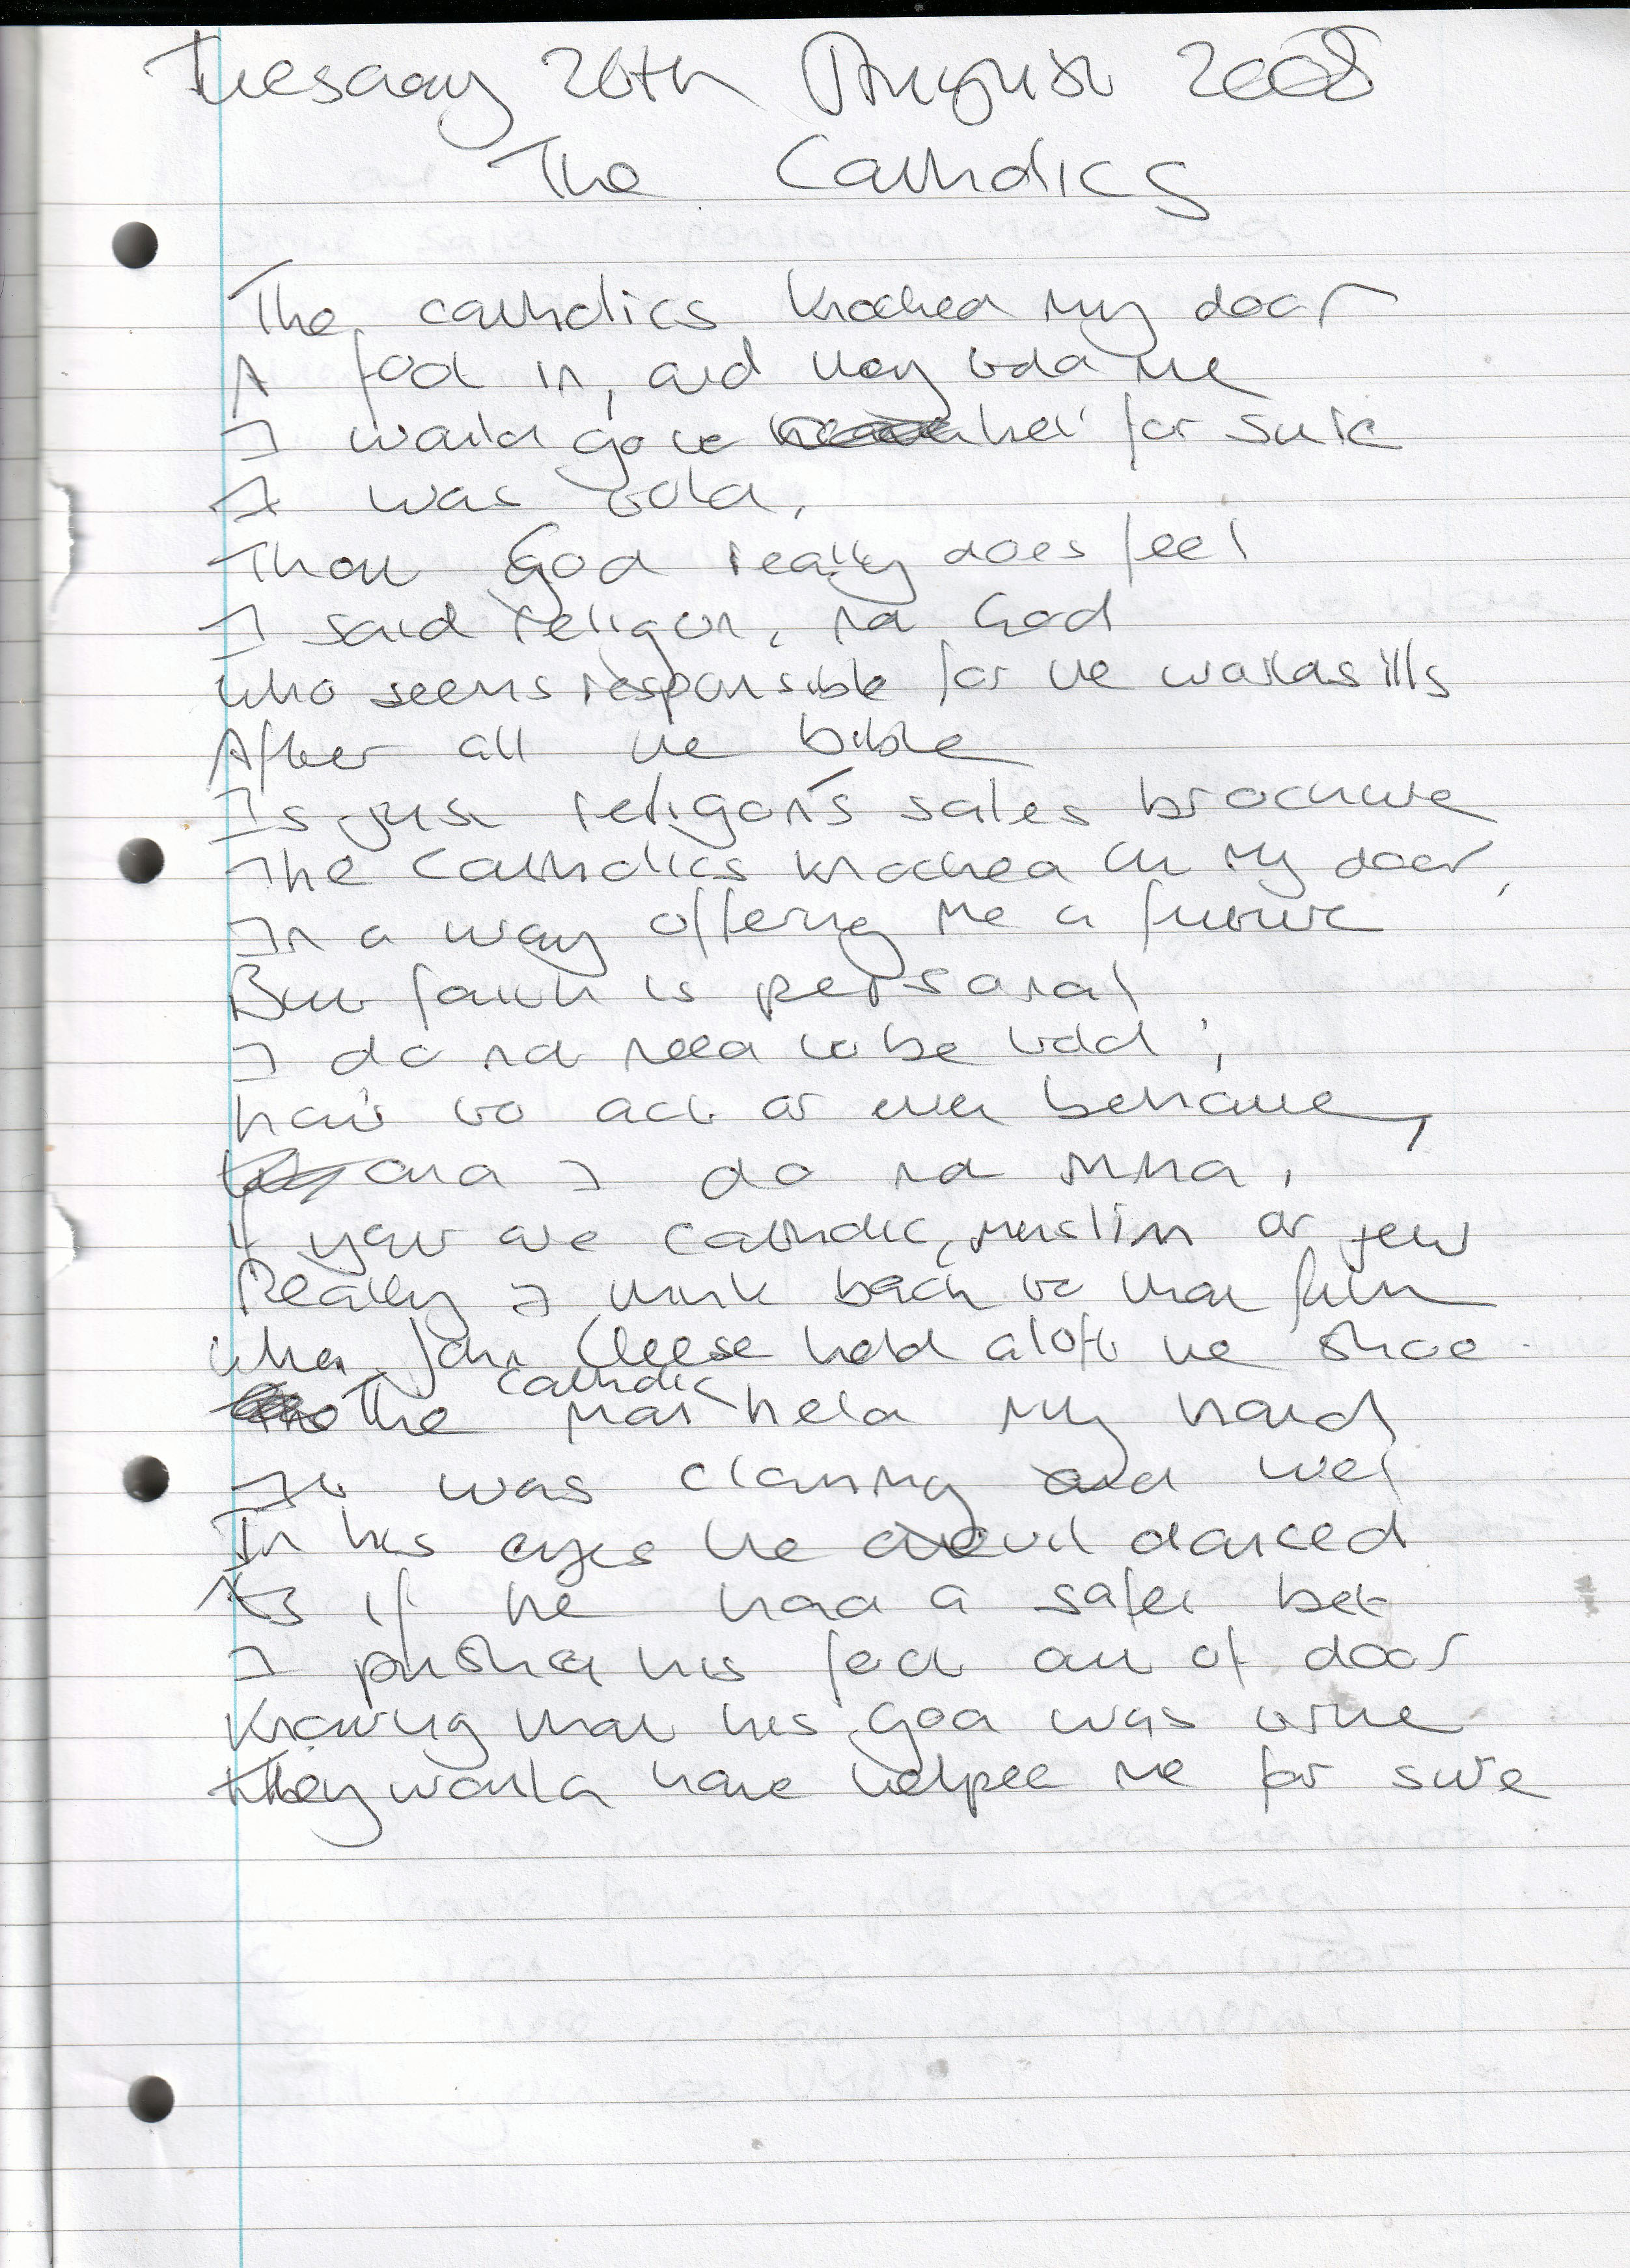 Tuesday 26th August 2008
The Catholics
The catholics knocked my door
A foot in, and they told me
I would go to hell for sure
I was told,
That God really does feel
I said religon, not God
who seems responsible for the worlds ills
After all the bible
Is just religon's sales brochure
The Catholics knocked on my door,
In a way offering me a future
But faith is personal
I do not need to be told,
how to act or even behave,
and I do not mind,
if your are catholic, muslim or jew
Really I think back to that film
when John Cleese held aloft the shoe.
The catholic man held my hand
It was claming and wet
In his eyes the devil danced
As if he had a safer bet
I pushed his foot out of door
Knowing that his god was true
They would have helped me for sure